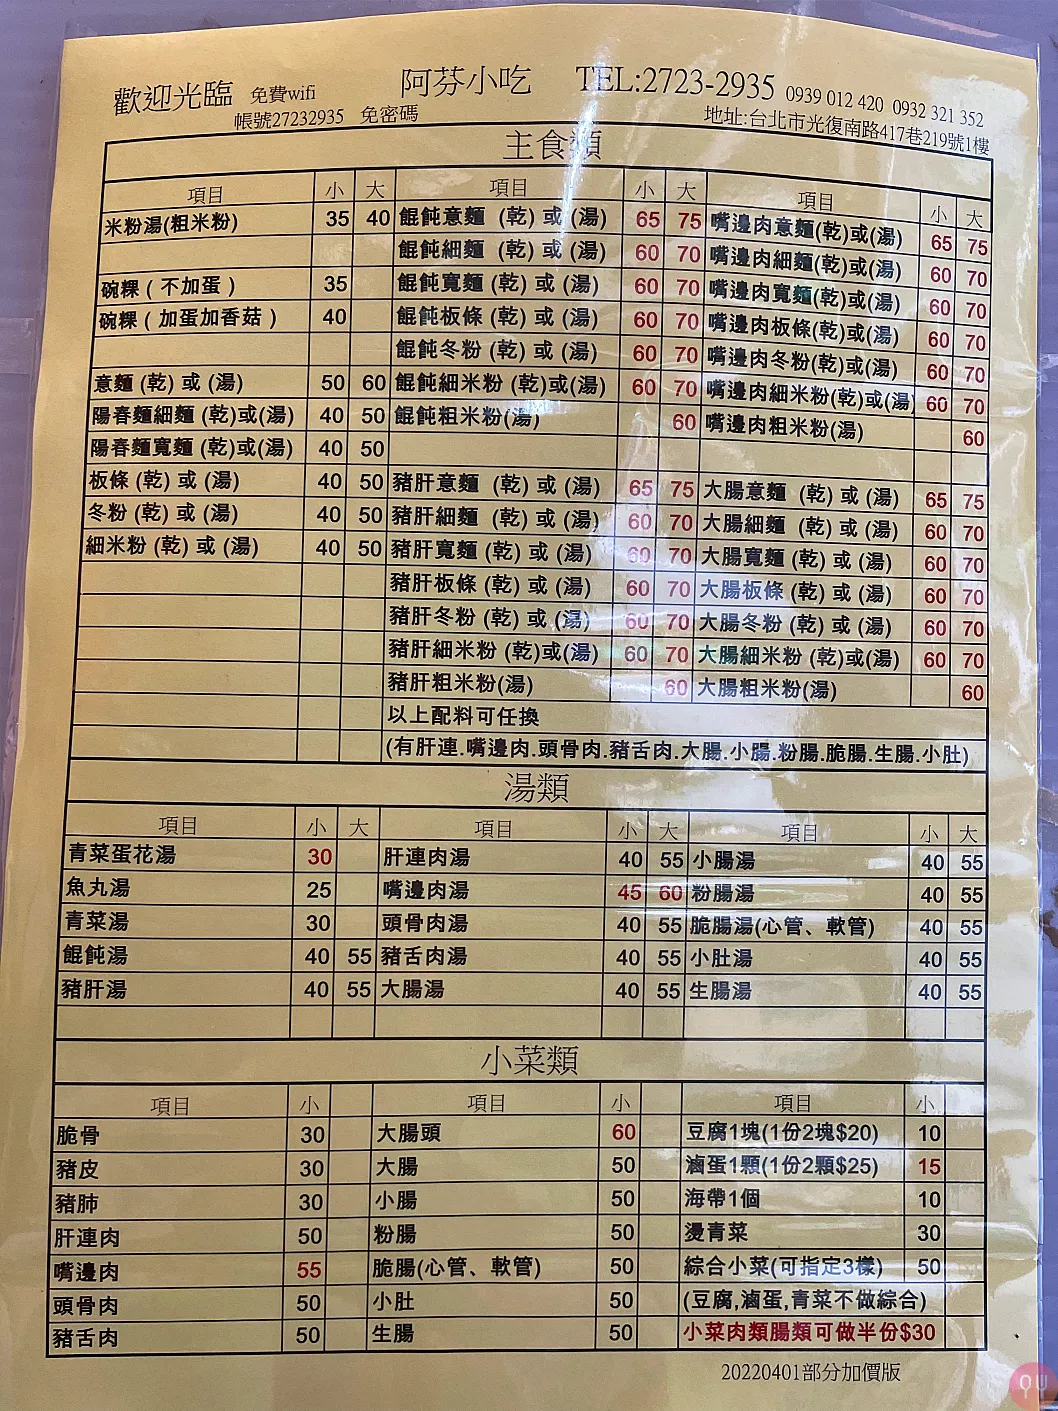 歡迎光臨 免費wifi 阿芬小吃 TEL:2723-2935 0939 012 420 0932 321 352
帳號27232935 免密碼 地址:台北市光復南路417巷219號1樓
主食類
項目 小 大 項目 小 大 項目 小 大
米粉湯(粗米粉) 35 40 餛飩意麵 (乾) 或 (湯) 65 75 嘴邊肉意麵(乾)或(湯) 65 75
餛飩細麵 (乾) 或 (湯) 60 70 嘴邊肉細麵(乾)或(湯) 60 70
碗粿 ( 不加蛋 ) 35 餛飩寬麵 (乾) 或 (湯) 60 70 嘴邊肉寬麵(乾)或(湯) 60 70
碗粿 ( 加蛋加香菇 ) 40 餛飩板條 (乾) 或 (湯) 60 70 嘴邊肉板條(乾)或(湯) 60 70
餛飩冬粉 (乾) 或 (湯) 60 70 嘴邊肉冬粉(乾)或(湯) 60 70
意麵 (乾) 或 (湯) 50 60 餛飩細米粉 (乾)或(湯) 60 70 嘴邊肉細米粉(乾)或(湯) 60 70
陽春麵細麵 (乾)或(湯) 40 50 餛飩粗米粉(湯) 60 嘴邊肉粗米粉(湯) 60
陽春麵寬麵 (乾)或(湯) 40 50
板條 (乾) 或 (湯) 40 50 豬肝意麵 (乾) 或 (湯) 65 75 大腸意麵 (乾) 或 (湯) 65 75
冬粉 (乾) 或 (湯) 40 50 豬肝細麵 (乾) 或 (湯) 60 70 大腸細麵 (乾) 或 (湯) 60 70
細米粉 (乾) 或 (湯) 40 50 豬肝寬麵 (乾) 或 (湯) 60 70 大腸寬麵 (乾) 或 (湯) 60 70
豬肝板條 (乾) 或 (湯) 60 70 大腸板條 (乾) 或 (湯) 60 70
豬肝冬粉 (乾) 或 (湯) 60 70 大腸冬粉 (乾) 或 (湯) 60 70
豬肝細米粉 (乾)或(湯) 60 70 大腸細米粉 (乾)或(湯) 60 70
豬肝粗米粉(湯) 60 大腸粗米粉(湯) 60
以上配料可任換
(有肝連.嘴邊肉.頭骨肉.豬舌肉.大腸.小腸.粉腸.脆腸.生腸.小肚)
湯類
項目 小 大 項目 小 大 項目 小 大
青菜蛋花湯 30 肝連肉湯 40 55 小腸湯 40 55
魚丸湯 25 嘴邊肉湯 45 60 粉腸湯 40 55
青菜湯 30 頭骨肉湯 40 55 脆腸湯(心管、軟管) 40 55
餛飩湯 40 55 豬舌肉湯 40 55 小肚湯 40 55
豬肝湯 40 55 大腸湯 40 55 生腸湯 40 55
小菜類
項目 小 項目 小 項目 小
脆骨 30 大腸頭 60 豆腐1塊(1份2塊$20) 10
豬皮 30 大腸 50 滷蛋1顆(1份2顆$25) 15
豬肺 30 小腸 50 海帶1個 10
肝連肉 50 粉腸 50 燙青菜 30
嘴邊肉 55 脆腸(心管、軟管) 50 綜合小菜(可指定3樣) 50
頭骨肉 50 小肚 50 (豆腐,滷蛋,青菜不做綜合)
豬舌肉 50 生腸 50 小菜肉類腸類可做半份$30
20220401部分加價版